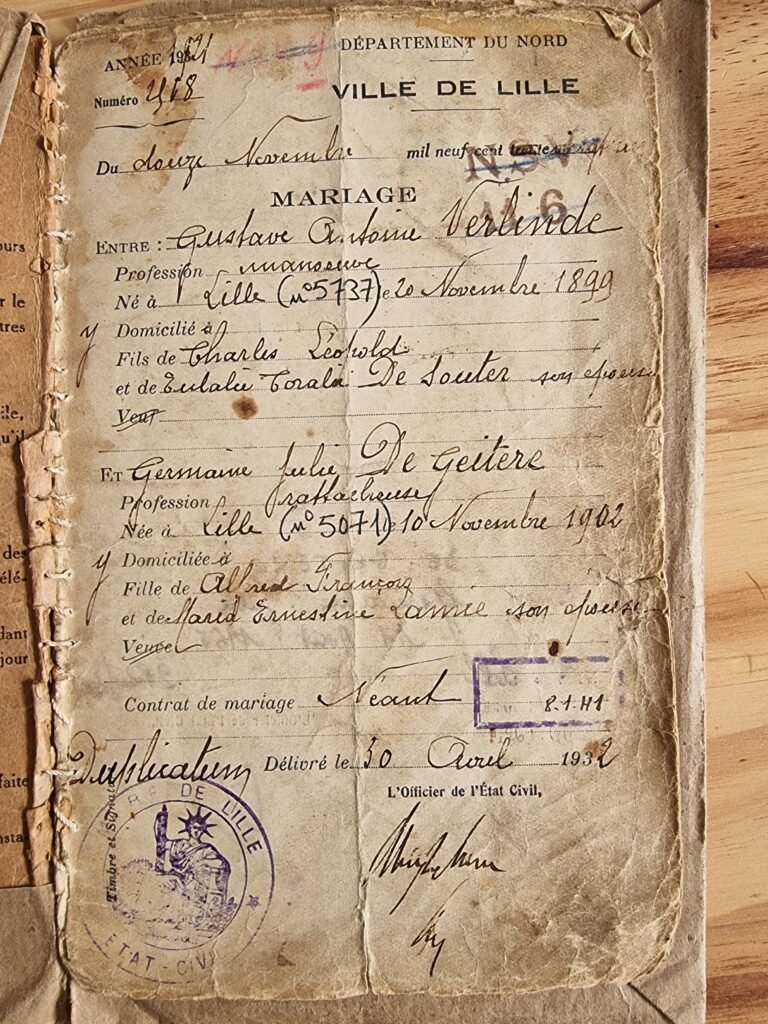 ANNÉE 19
DÉPARTEMENT DU NORD
Numéro 418
VILLE DE LILLE
Du douze Novembre mil neuf cent trente
N.S.V
6
MARIAGE
ENTRE : Gustave Antoine Verlinde
Profession manoeuvre
Né à Lille (n° 5737) le 20 Novembre 1899
y Domicilié à
Fils de Charles Léopold
et de Eulalie Coralie De Souter son épouse
Veuf
ET Germaine Julie De Geitere
Profession rattacheuse
Née à Lille (n° 5071) le 10 Novembre 1902
y Domiciliée à
Fille de Alfred François
et de Maria Ernestine Lamie son épouse
Veuve
Contrat de mariage Néant
8.1.41
Duplicatum Délivré le 30 Avril 1932
L'Officier de l'État Civil,
Timbre et
RE DE LILLE
ÉTAT - CIVIL
ours
r le
tres
ile,
qu'il
des
élé-
dant
jour
faite
insta